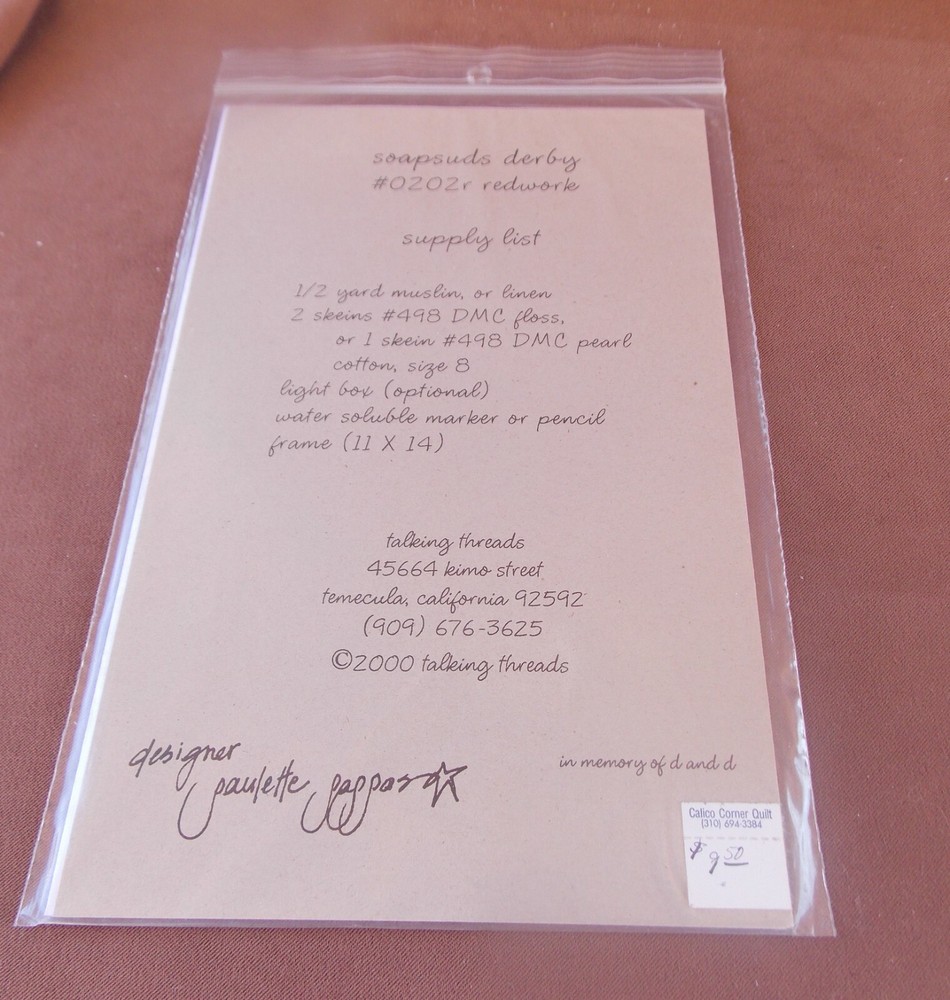 soapsuds derby
#0202r redwork
supply list
1/2 yard muslin, or linen
2 skeins #498 DMC floss,
or 1 skein #498 DMC pearl
cotton, size 8
light box (optional)
water soluble marker or pencil
frame (11 X 14)
talking threads
45664 kimo street
temecula, california 92592
(909) 676-3625
©2000 talking threads
designer
paulette pappas
in memory of d and d
Calico Corner Quilt
(310) 694-3384
$9.50